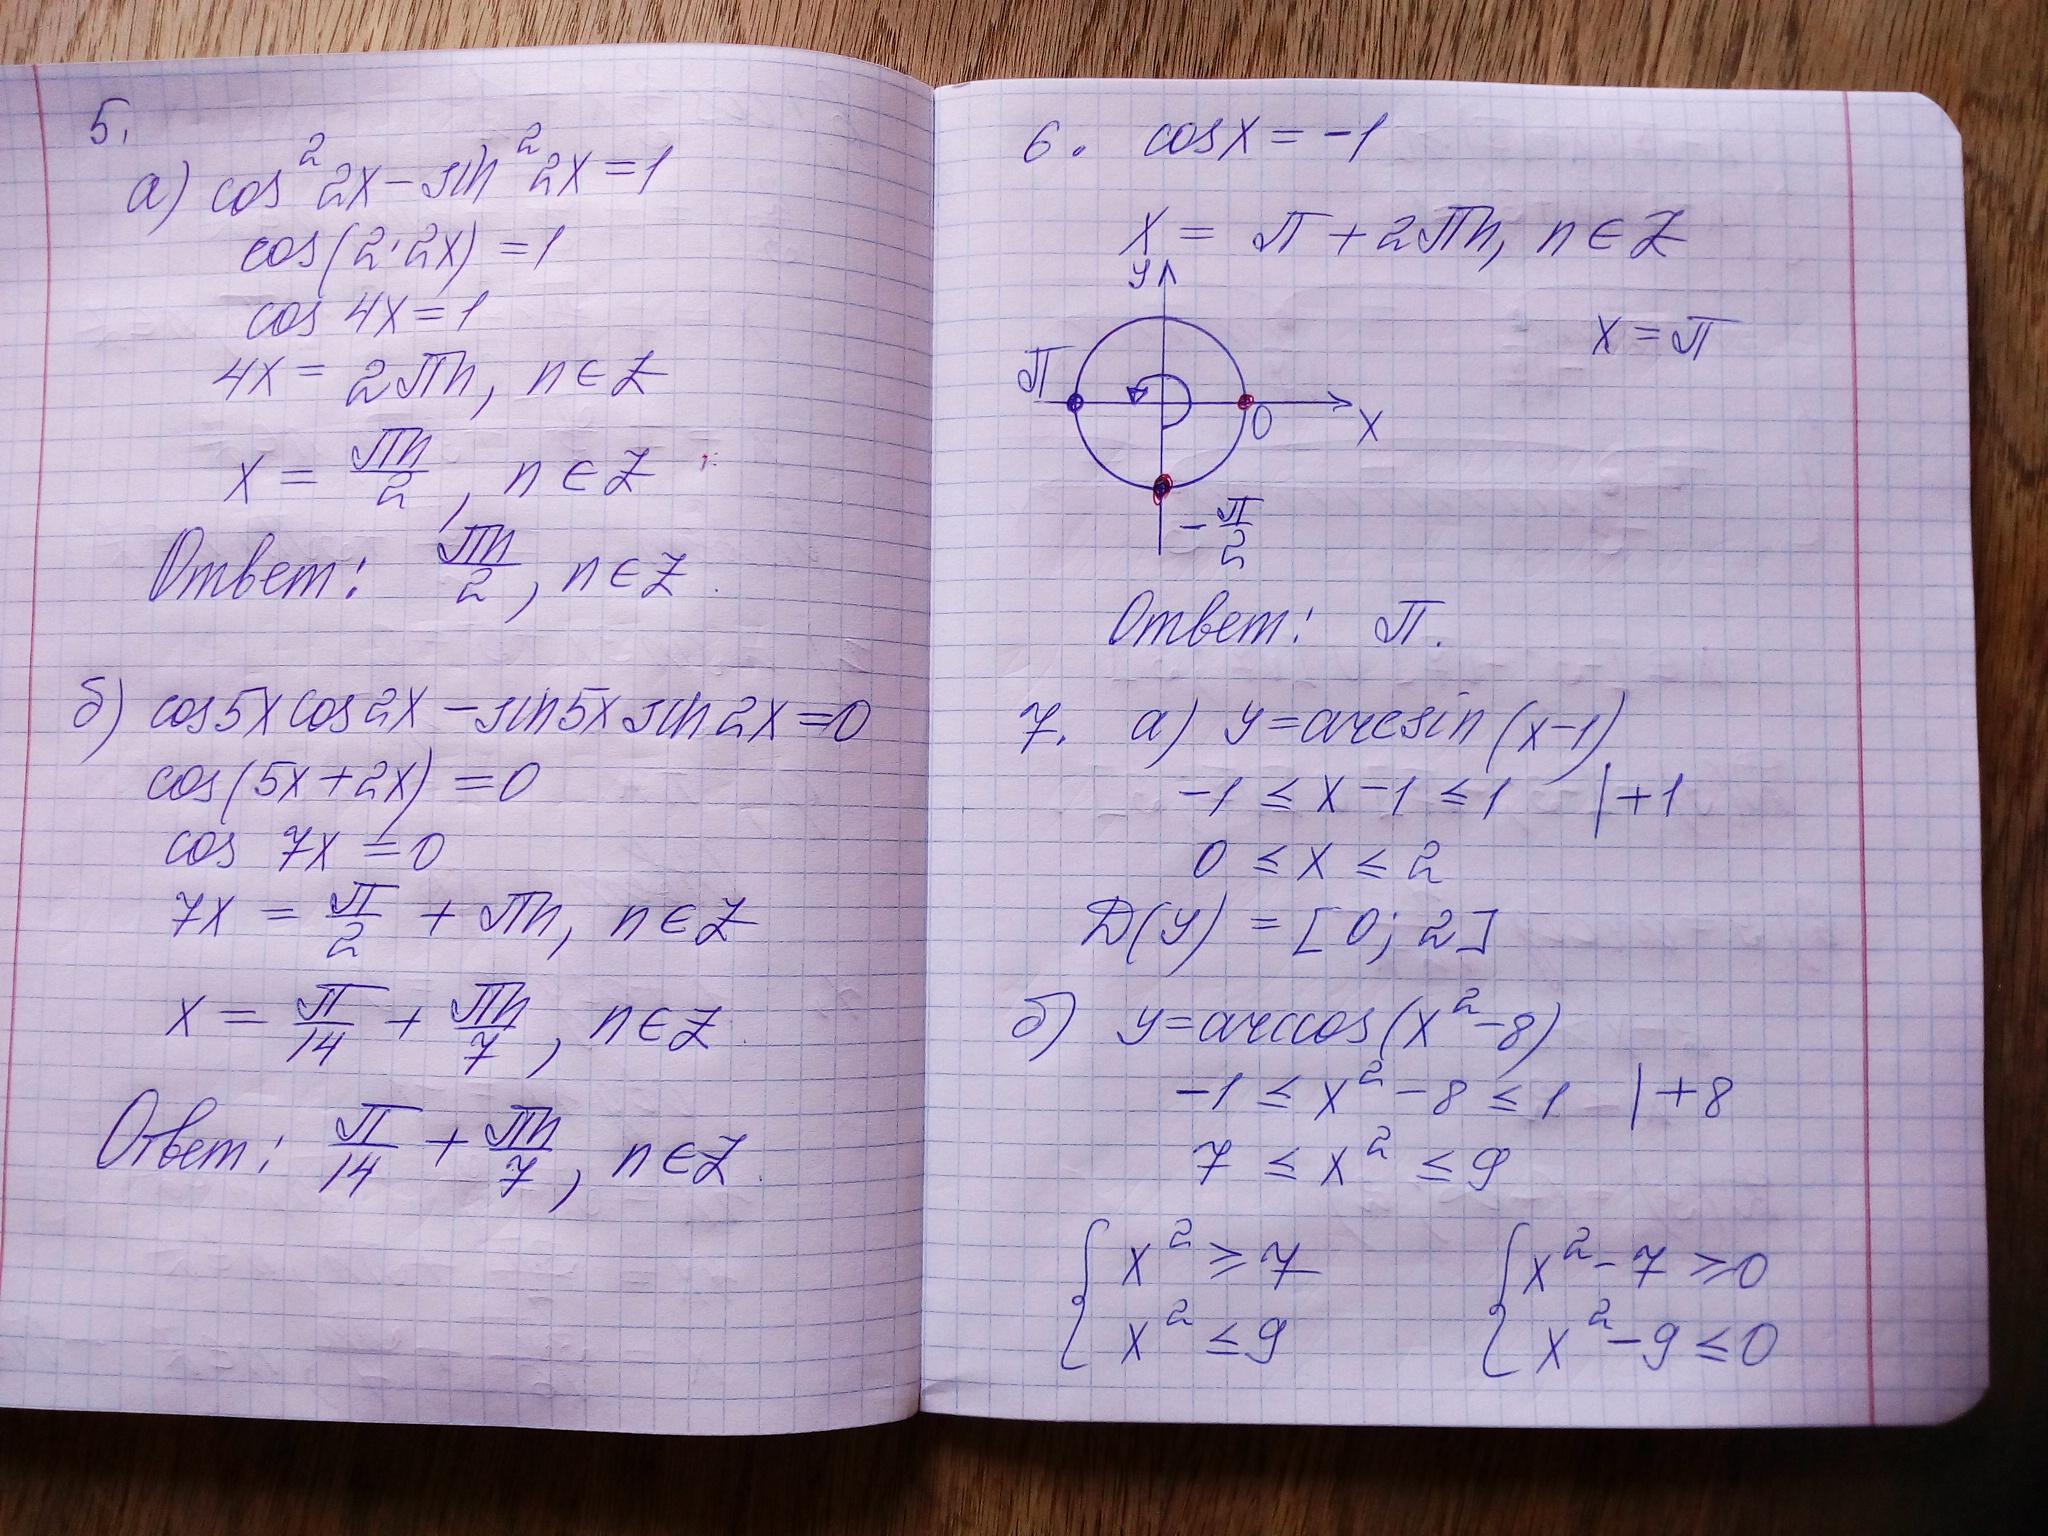 5.
а) cos²2x − sin²2x = 1
cos(2·2x) = 1
cos 4x = 1
4x = 2πn, n ∈ Z
x = πn/2, n ∈ Z
Ответ: πn/2, n ∈ Z.
б) cos5x cos2x − sin5x sin2x = 0
cos(5x + 2x) = 0
cos 7x = 0
7x = π/2 + πn, n ∈ Z
x = π/14 + πn/7, n ∈ Z.
Ответ: π/14 + πn/7, n ∈ Z.
6. cosx = −1
x = π + 2πn, n ∈ Z
y
x = π
π
0
x
−π/2
Ответ: π.
7. а) y = arcsin(x−1)
−1 ≤ x − 1 ≤ 1 | +1
0 ≤ x ≤ 2
D(y) = [0; 2]
б) y = arccos(x² − 8)
−1 ≤ x² − 8 ≤ 1 | +8
7 ≤ x² ≤ 9
{ x² ≥ 7 { x² − 7 ≥ 0
x² ≤ 9 x² − 9 ≤ 0